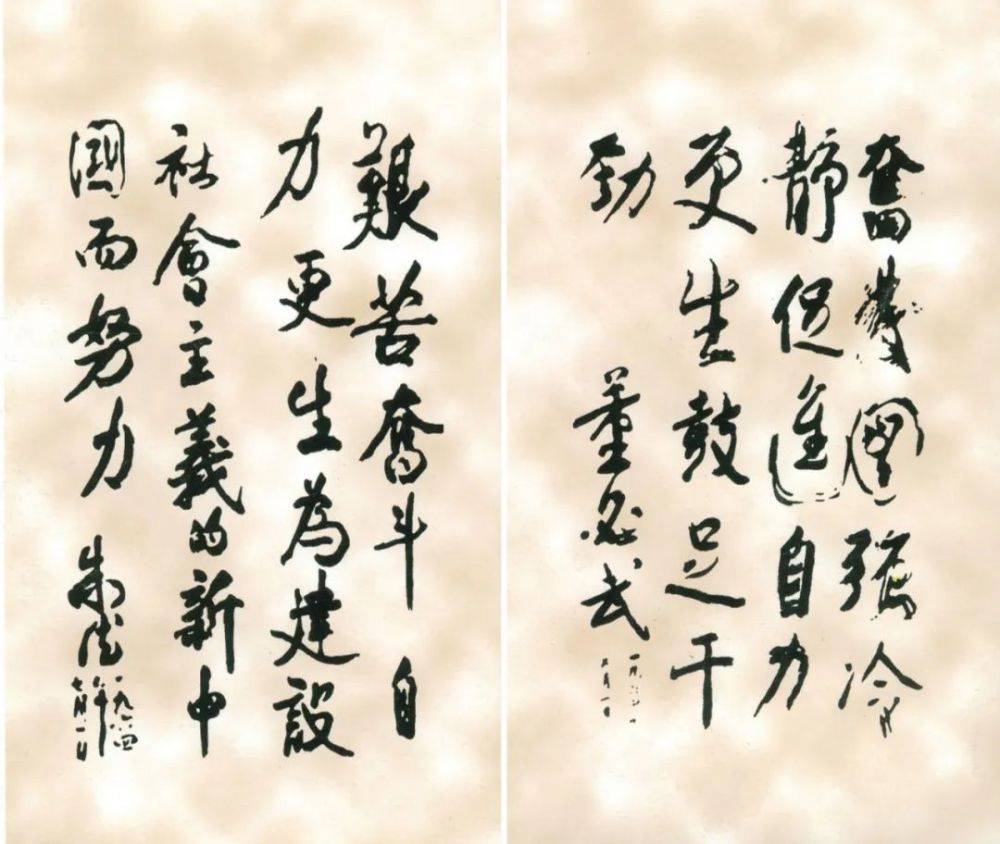 奮發圖強冷
靜促進自力
更生鼓足干
劲 董必武
艱苦奮斗自
力更生為建設
社會主義的新中
國而努力 朱德
一九六四年
七月一日